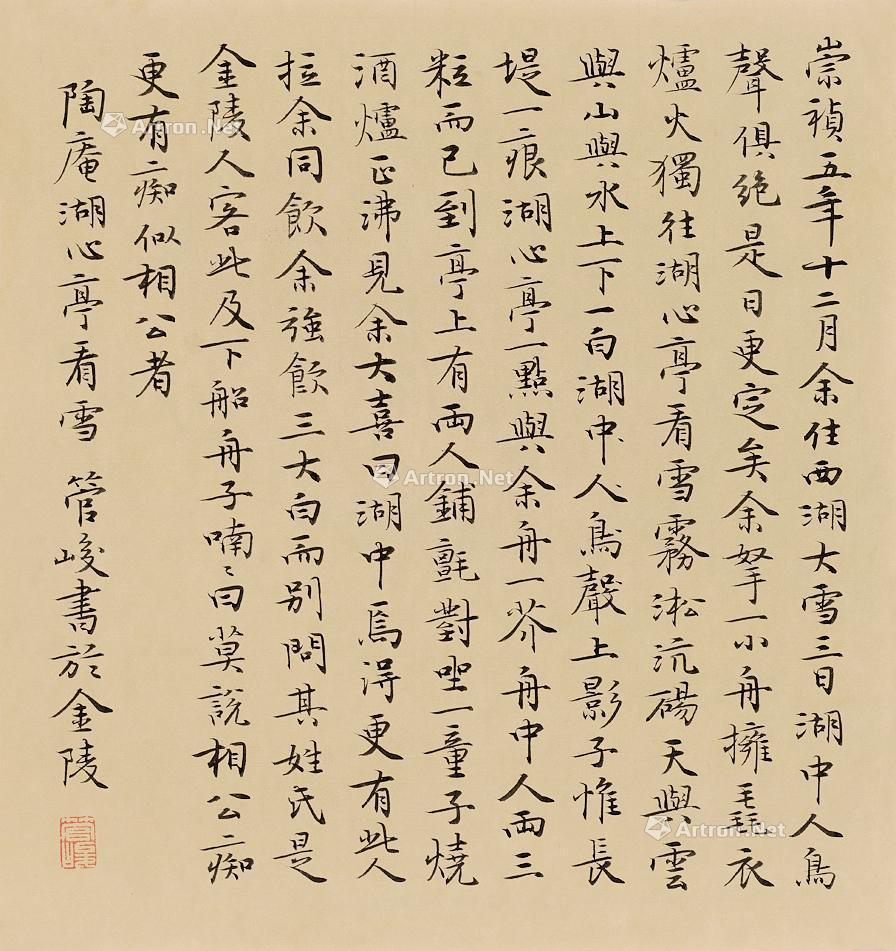 崇禎五年十二月余住西湖大雪三日湖中人鳥
聲俱絕是日更定矣余拏一小舟擁毳衣
爐火獨往湖心亭看雪霧淞沆碭天與雲
與山與水上下一白湖中人鳥聲上影子惟長
堤一痕湖心亭一點與余舟一芥舟中人兩三
粒而已到亭上有兩人鋪氈對坐一童子燒
酒爐正沸見余大喜曰湖中焉得更有此人
拉余同飲余強飲三大白而別問其姓氏是
金陵人客此及下船舟子喃〻曰莫說相公痴
更有痴似相公者
陶庵湖心亭看雪 管峻書於金陵
管峻
Artron.Net
Artron.Net
Artron.Net
Artron.Net
Artron.Net